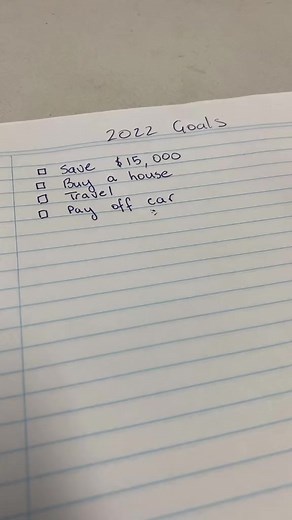 2022 Goals
□ Save $15,000
□ Buy a house
□ Travel
□ Pay off car